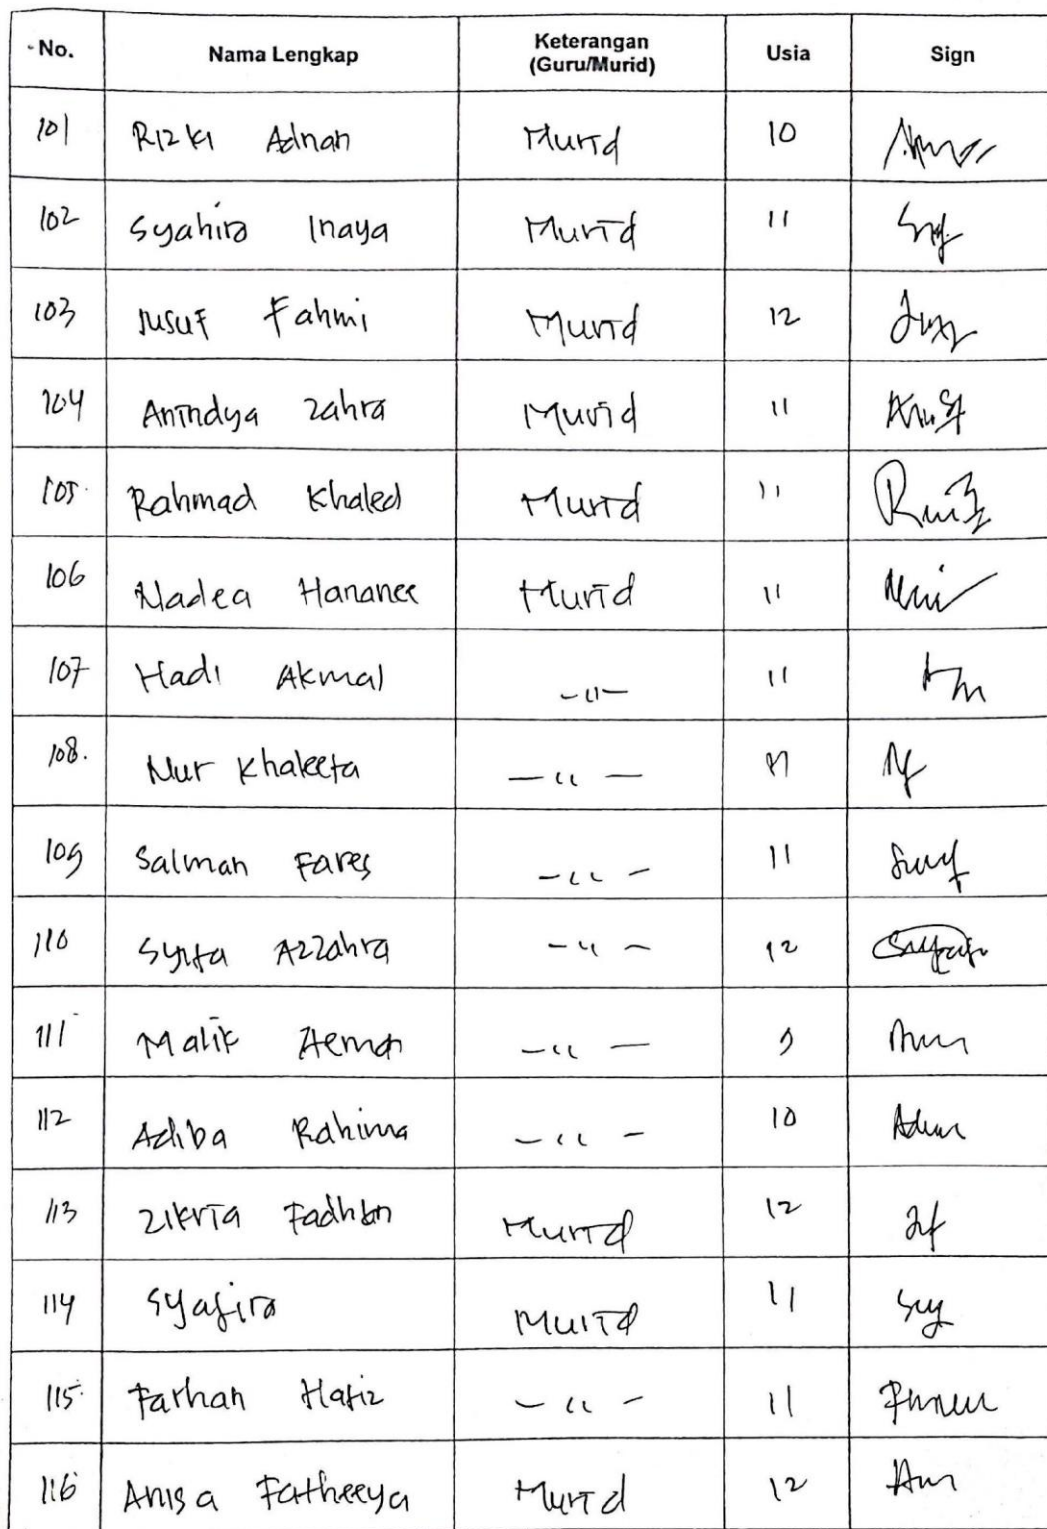 No. Nama Lengkap Keterangan (Guru/Murid) Usia Sign
101 Rizki Adnan Murid 10
102 Syahira Inaya Murid 11
103 Yusuf Fahmi Murid 12
104 Anindya Zahra Murid 11
105. Rahmad Khaled Murid 11
106 Nadea Hananee Murid 11
107 Hadi Akmal –〃– 11
108. Nur Khaleeta –〃–
109 Salman Fares –〃– 11
110 Syifa Azzahra –〃– 12
111 Malik –〃– 9
112 Adiba Rahima –〃– 10
113 Zikria Fadhlan Murid 12
114 Syafira Murid 11
115. Farhan Hafiz –〃– 11
116 Anisa Fatheeya Murid 12